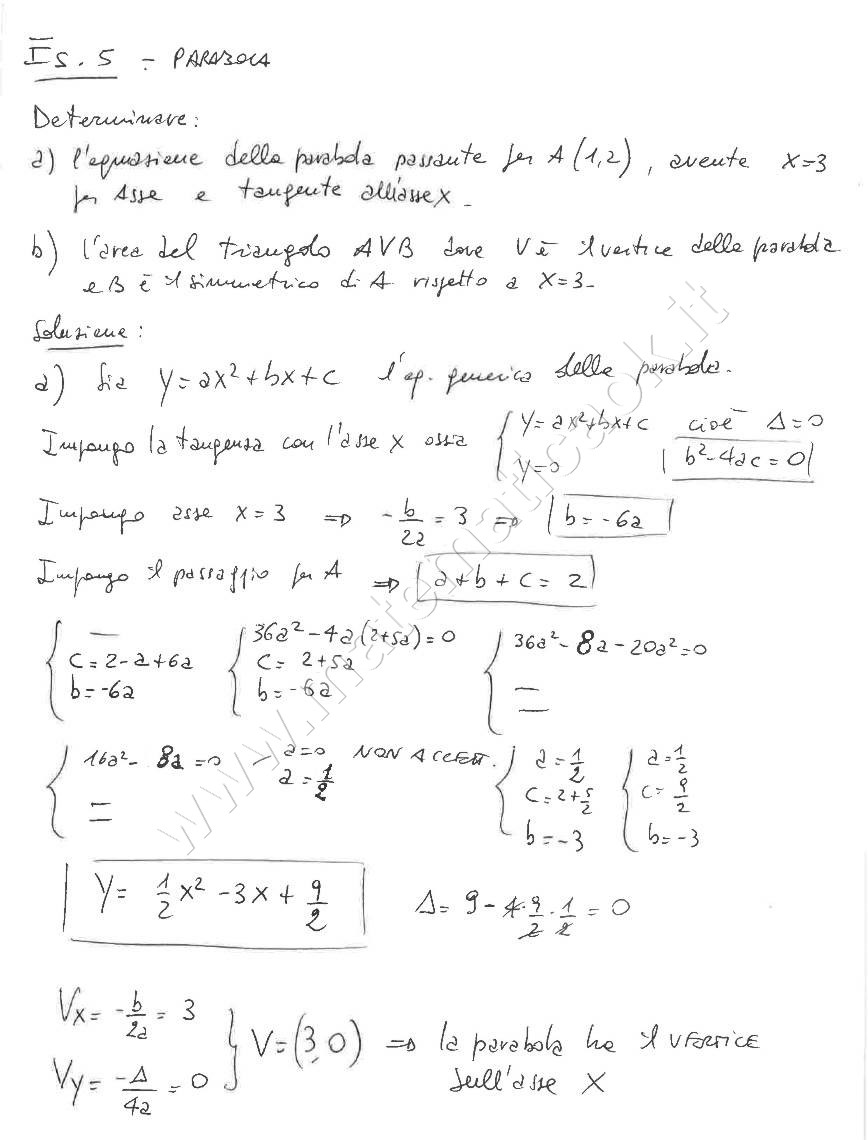 Es. 5 - PARABOLA
Determinare:
a) l'equazione della parabola passante per A(1,2), avente x=3
per Asse e tangente all'asse x.
b) l'area del triangolo AVB dove V è il vertice della parabola
e B è il simmetrico di A rispetto a x=3.
Soluzione:
a) Sia y=ax²+bx+c l'eq. generica della parabola.
Impongo la tangenza con l'asse x ossia { y=ax²+bx+c cioè Δ=0
y=0 b²-4ac=0
Impongo asse x=3 ⇒ -b/2a = 3 ⇒ b=-6a
Impongo il passaggio per A ⇒ a+b+c=2
{ — { 36a²-4a(2+5a)=0 { 36a²-8a-20a²=0
c=2-a+6a c=2+5a =
b=-6a b=-6a
{ 16a²-8a=0 - a=0 NON ACCETT. { a=1/2 { a=1/2
= a=1/2 c=2+5/2 c=9/2
b=-3 b=-3
y= 1/2 x² - 3x + 9/2 Δ= 9-4·9/2·1/2 = 0
Vx= -b/2a = 3
} V=(3,0) ⇒ la parabola ha il VERTICE
Vy= -Δ/4a = 0 sull'asse x
www.matematicaok.it